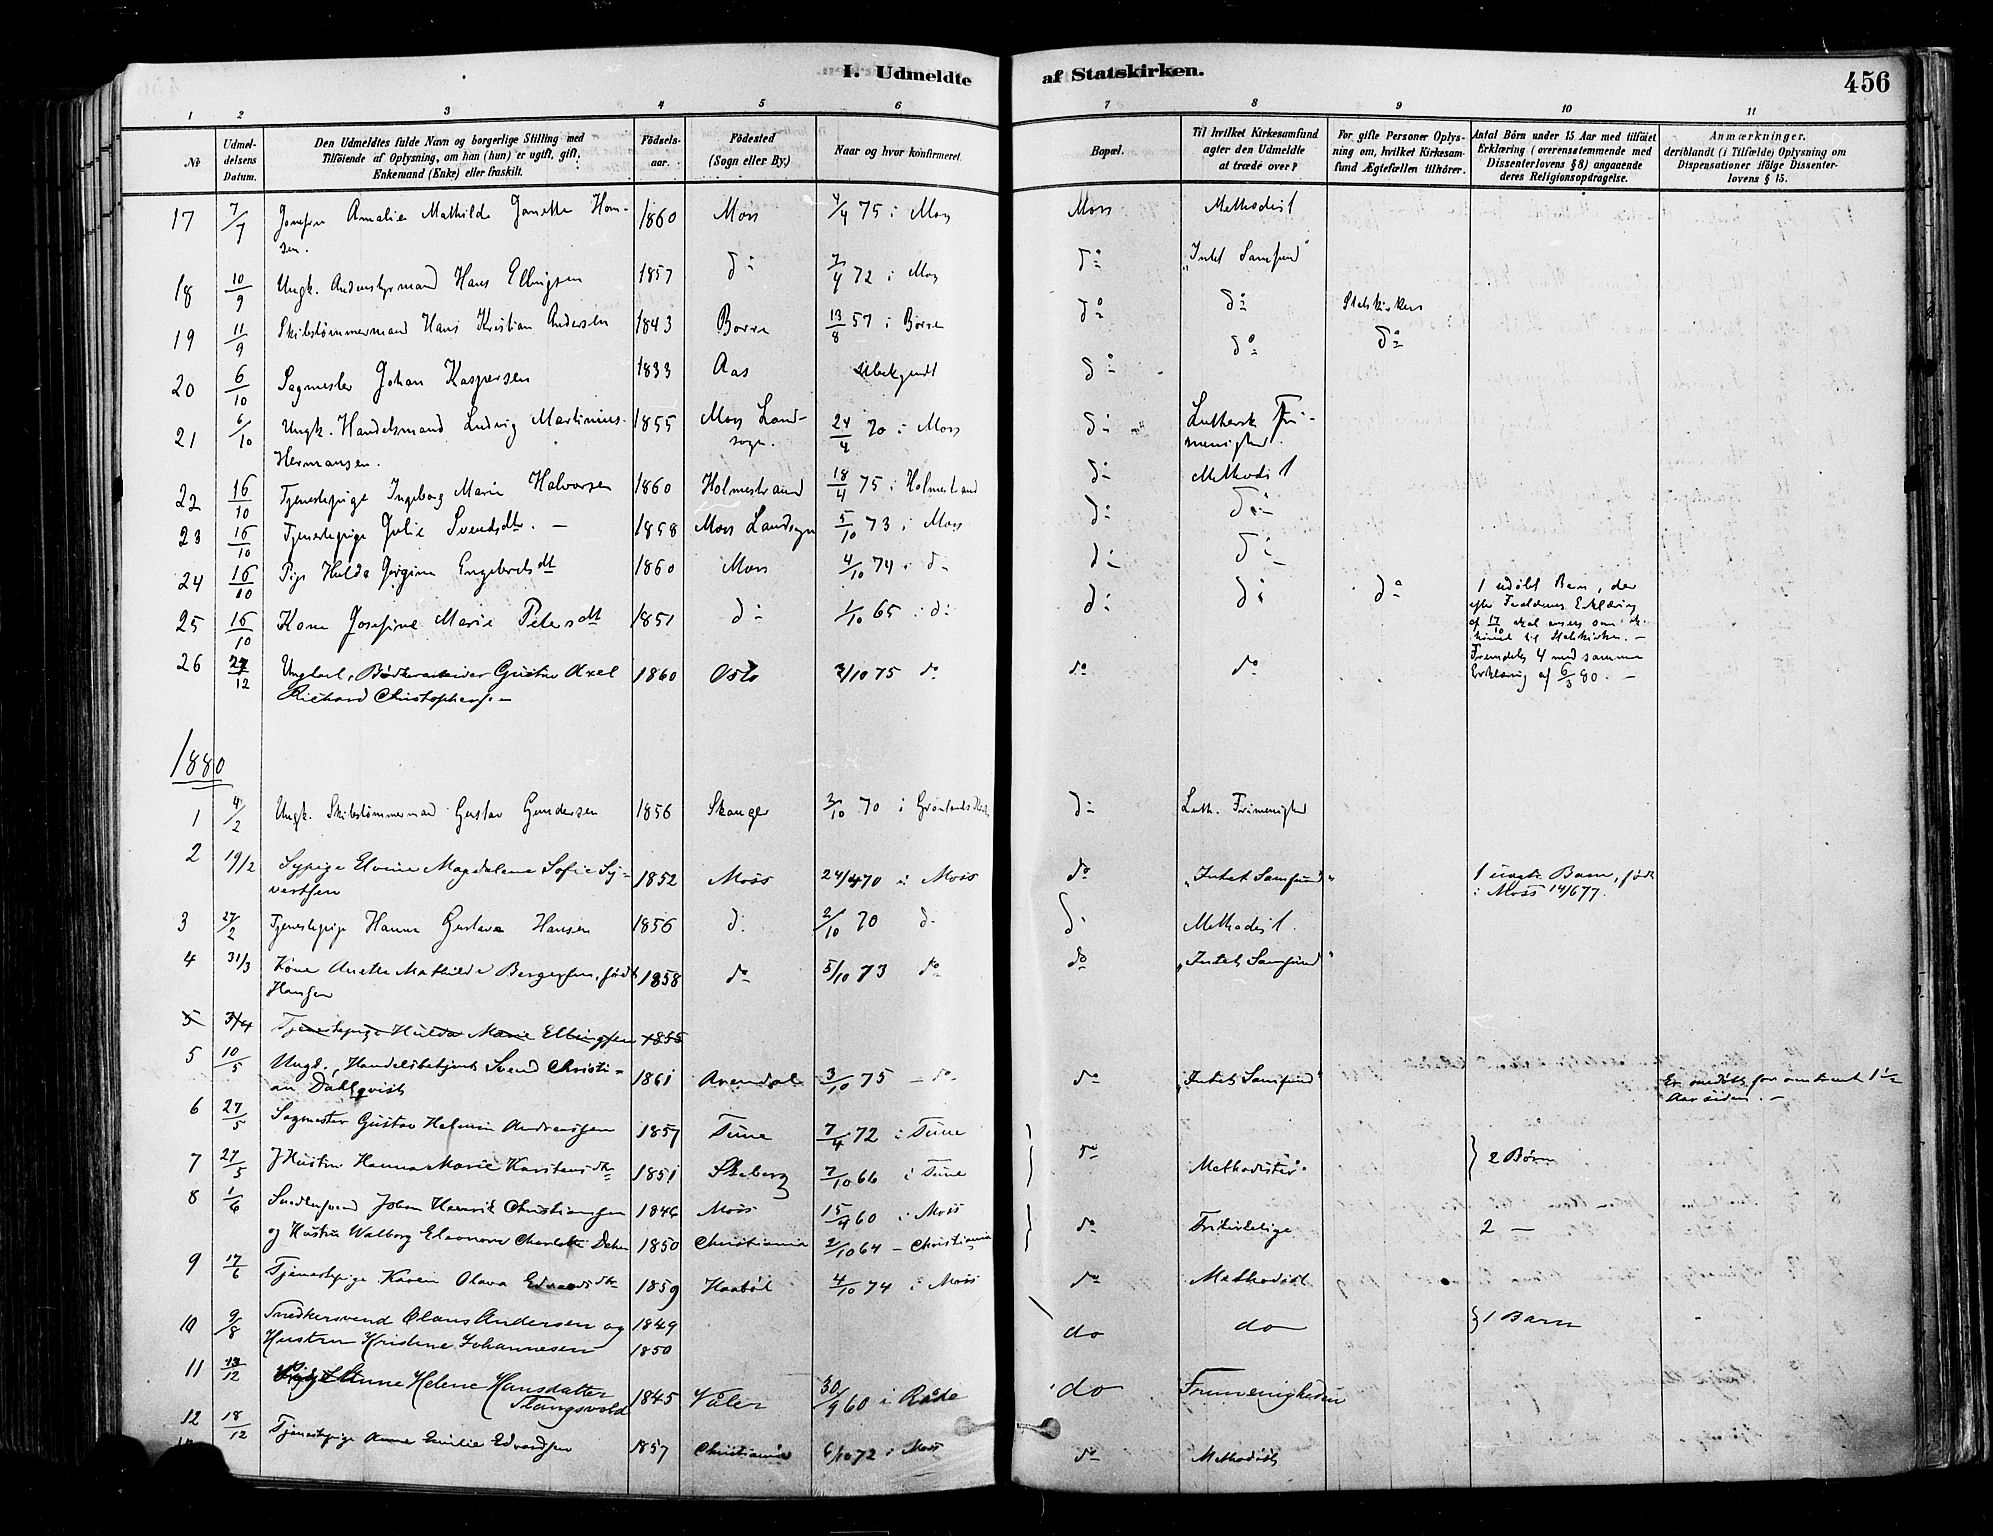 I. Udmeldte af Statskirken.
456
1 2 3 4 5 6 7 8 9 10 11
No
Udmeldelsens Datum.
Den Udmeldtes fulde Navn og borgerlige Stilling med Tilföiende af Oplysning, om han (hun) er ugift, gift, Enkemand (Enke) eller fraskilt.
Födselsaar.
Födested (Sogn eller By.)
Naar og hvor konfirmeret.
Bopæl.
Til hvilket Kirkesamfund agter den Udmeldte at træde over?
For gifte Personer Oplysning om, hvilket Kirkesamfund Ægtefællen tilhörer.
Antal Börn under 15 Aar med tilföiet Erklæring (overensstemmende med Dissenterlovens § 8) angaaende deres Religionsopdragelse.
Anmærkninger, deriblandt (i Tilfælde) Oplysning om Dispensationer ifölge Dissenterlovens § 15.
17 7/7 Jomfru Amalie Mathilde Janette Han- 1860 Moss 4/4 75 i Moss Moss Methodist
sen.
18 10/9 Ungk. Andenstyrmand Hans Ellingsen 1857 do 7/4 72 i Moss do "Intet Samfund"
19 11/9 Skibstømmermand Hans Kristian Andersen 1843 Borre 13/8 57 i Borre do do Statskirken
20 6/10 Sagmester Johan Kaspersen 1833 Aas Ubekjendt do do do
21 6/10 Ungk. Handelsmand Ludvig Martinius 1855 Moss Land- 24/4 70 i Moss do Luthersk Fri-
Hermansen. sogn. menighed.
22 16/10 Tjenestepige Ingeborg Marie Halvorsen 1860 Holmestrand 18/4 75 i Holmestrand do Methodist
23 16/10 Tjenestepige Julie Svendsdtr. - 1858 Moss Landsogn 5/10 73 i Moss do do
24 16/10 Pige Hulda Jørgine Engebretsdt 1860 Moss 4/10 74 i do do do
25 16/10 Kone Josefine Marie Petersdt 1851 do 1/10 65 i do do do do 1 udøbt Barn, der
efter Forældrenes Erklæring
af 17/10 skal ansees som
til Statskirken. -
26 27/12 Ungkarl, Bødkerarbeider Gustav Axel 1860 Oslo 3/10 75 do do do Fremdeles 4 med samme
Richard Christophers. - Erklæring af 6/3 80. -
1880
1 4/2 Ungk. Skibstømmermand Gustav Gundersen 1856 Skanger 3/10 70 i Grønlands do Luth. Frimenighed
2 19/2 Sypige Elvine Magdalene Sofie Sy- 1852 Moss 24/4 70 i Moss do "Intet Samfund" 1 uægte Barn, født
vertsen i Moss 14/6 77.
3 27/2 Tjenestepige Hanna Gustava Hansen 1856 do 2/10 70 do do Methodist.
4 31/3 Kone Anette Mathilde Bergersen, født 1858 do 5/10 73 do do "Intet Samfund"
Hansen
5 3/4 Tjenestepige Hulda Marie Ellingsen 1855
5 10/5 Ungk., Handelsbetjent Svend Christi- 1861 Arendal 3/10 75 - do do "Intet Samfund" Er omdøbt for omtrent 1 1/2
an Dahlqvist Aar siden. -
6 27/5 Sagmester Gustav Helmin Andreassen 1857 Tune 7/4 72 i Tune
7 27/5 Hustru Hanna Marie Karstensdtr 1851 Skeberg 7/10 66 i Tune do Methodister. 2 Børn
8 1/6 Snedkersvend Johan Henrik Christiansen 1846 Moss 15/9 60 i Moss
og Hustru Walborg Eleonora Charlotte 1850 Christiania 2/10 64 - Christiania do Frikirkelige 2 -
9 17/6 Tjenestepige Karen Olava Edvardsdtr 1859 Haabøl 4/10 74 i Moss do Methodist
10 9/8 Snedkersvend Olaus Andersen og 1849 do do 1 Barn
Hustru Kristine Johannesen 1850
11 13/12 Anne Helene Hansdatter 1845 Våler 30/9 60 i Råde do Frimenigheden
Stangsvold
12 18/12 Tjenestepige Anne Emilie Edvardsen 1857 Christiania 6/10 72 i Moss do Methodist